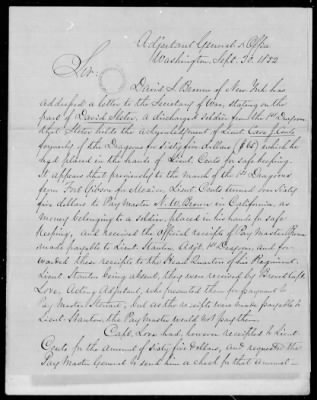 Adjutant General's Office
Washington, Sept. 30. 1852
Sir.
David S. Brown of New York has
addressed a letter to the Secretary of War, stating on the
part of David Slater, a discharged soldier from the 1st Dragoons
that Slater holds the acknowledgment of Lieut Cave J. Couts
formerly of the Dragoons for sixty five dollars ($65) which he
had placed in the hands of Lieut Couts for safe keeping.
It appears that previously to the march of the 1st Dragoons
from Fort Gibson for Mexico, Lieut Couts turned over Sixty
five dollars to Pay Master in California, as
money belonging to a soldier, placed in his hands for safe
keeping, and received the official receipts of Pay Master
made payable to Lieut. Stanton Adjt. 1st Dragoons, and for-
warded these receipts to the Head Quarters of his Regiment.
Lieut Stanton being absent, they were received by Brevet Capt
Love, Acting Adjutant, who presented them for payment to
Pay Master, but as the receipts were made payable to
Lieut Stanton, the Pay Master would not pay them.
Capt. Love had, however receipted to Lieut
Couts for the amount of sixty five dollars, and requested the
Pay Master General to send him a check for that amount—